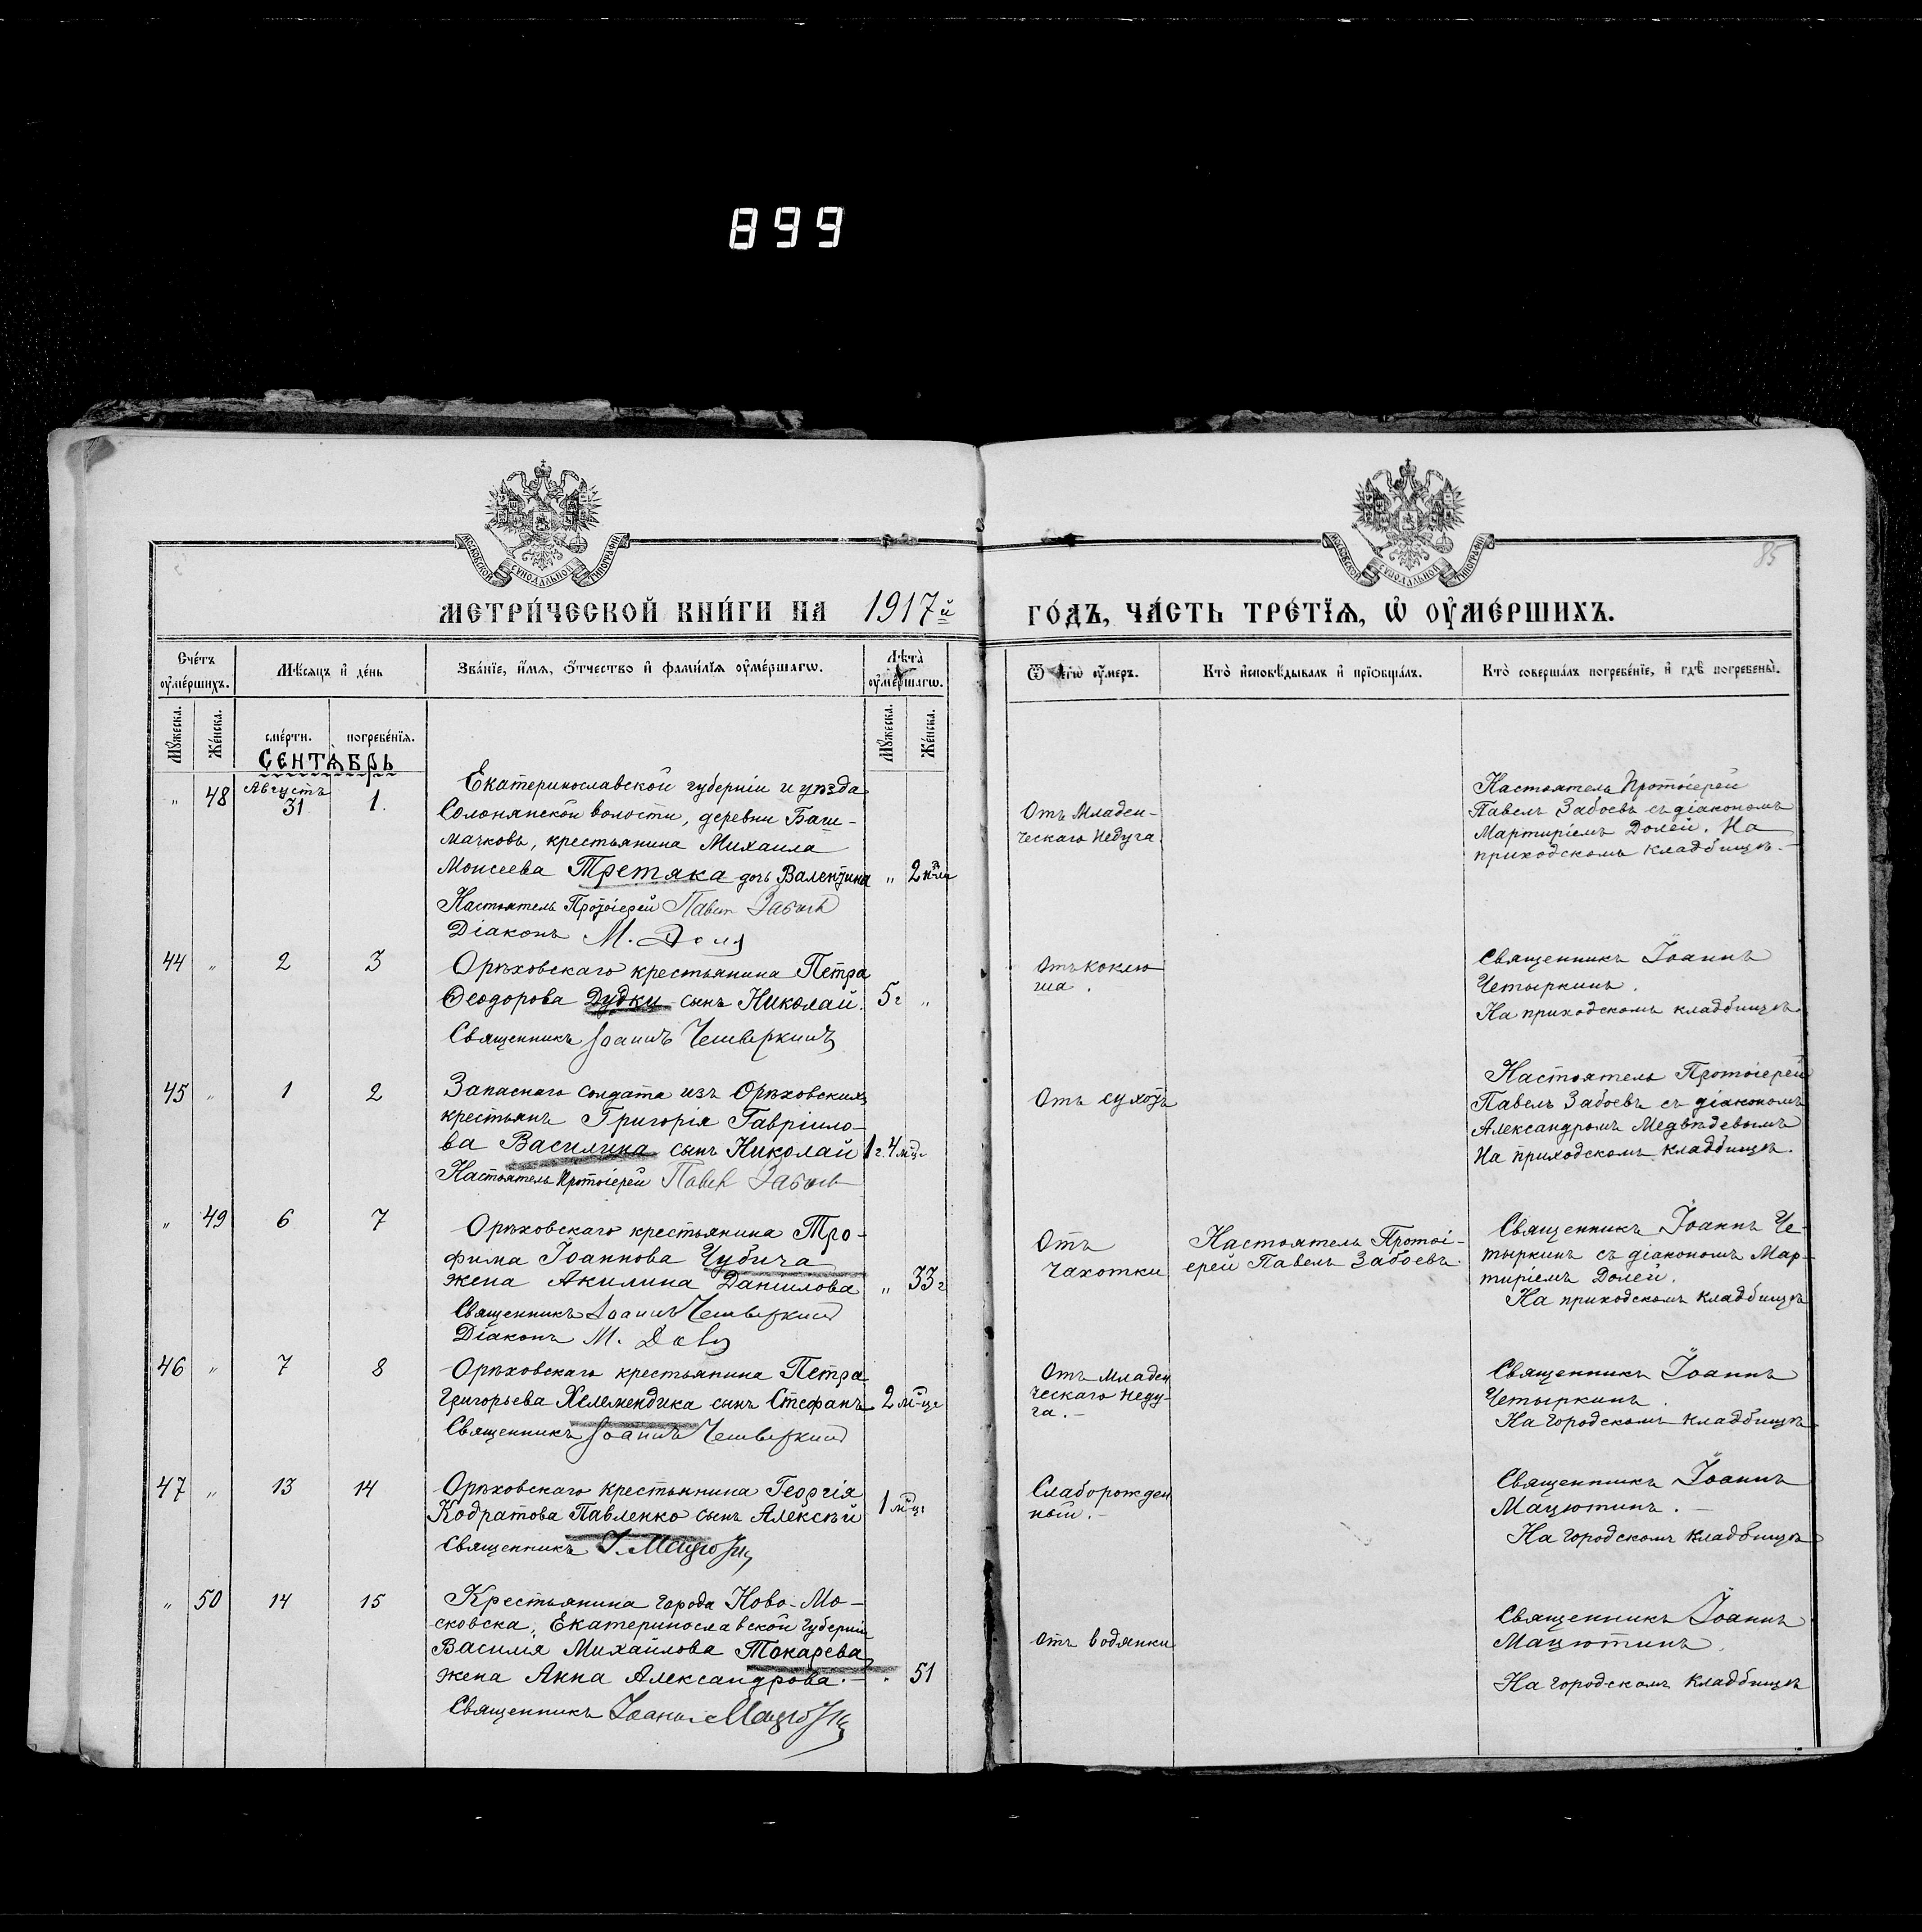 899
МОСКОВСКОЙ СѴНОДАЛЬНОЙ ТИПОГРАФІИ
МОСКОВСКОЙ СѴНОДАЛЬНОЙ ТИПОГРАФІИ
85
МЕТРИ́ЧЕСКОЙ КНИ́ГИ НА 1917й ГО́ДЪ, ЧА́СТЬ ТРЕ́ТЇѦ, Ѡ҆ ОУ҆МЕ́РШИХЪ.
Сче́тъ оу҆ме́ршихъ.
Мѣ́сяцъ и҆ де́нь
Зва́нїе, и҆́мя, ѻ҆́тчество и҆ фами́лїя оу҆ме́ршагѡ.
Лѣта̀ оу҆ме́ршагѡ.
Ѿ чегѡ̀ оу҆́меръ.
Кто̀ и҆сповѣ́дывалъ и҆ прїѻбща́лъ.
Кто̀ соверша́лъ погребе́нїе, и҆ гдѣ̀ погребены̀.
Мꙋ́жеска.
Же́нска.
сме́рти.
погребе́нїя.
Мꙋ́жеска.
Же́нска.
СЕНТѦ́БРЬ
„ 48 Августъ 31 1.
Екатеринославской губерніи и уѣзда
Солонянской волости, деревни Баш-
мачковъ, крестьянина Михаила
Моисеева Третяка дочь Валентина „ 2 н-ли
Настоятель Протоіерей Павел Забоев
Діаконъ М. Доля
Отъ Младен-
ческаго Недуга
Настоятель Протоіерей
Павелъ Забоевъ съ діакономъ
Мартиріемъ Долей. На
приходскомъ кладбищѣ.-
44 „ 2 3
Орѣховскаго крестьянина Петра
Ѳеодорова Дудки сынъ Николай. 5 г „
Священникъ Іоаннъ Четыркинъ
Отъ коклю
ша.
Священникъ Іоаннъ
Четыркинъ.
На приходскомъ кладбищѣ.
45 „ 1 2
Запаснаго солдата изъ Орѣховскихъ
крестьянъ Григорія Гавріило-
ва Василина сынъ Николай 1 г. 4 м-ца
Настоятель Протоіерей Павел Забоев
Отъ сухотъ
Настоятель Протоіерей
Павелъ Забоевъ съ діакономъ
Александромъ Медвѣдевымъ
На приходскомъ кладбищѣ.
„ 49 6 7
Орѣховскаго крестьянина Тро-
фима Іоаннова Чубича
жена Акилина Данилова „ 33 г
Священникъ Іоаннъ Четыркинъ
Діаконъ М. Доля
Отъ
чахотки
Настоятель Протоі-
ерей Павелъ Забоевъ
Священникъ Іоаннъ Че-
тыркинъ съ діакономъ Мар-
тиріемъ Долей.
На приходскомъ кладбищѣ
46 „ 7 8
Орѣховскаго крестьянина Петра
Григорьева Хелемендика сынъ Стефанъ 2 м-ца
Священникъ Іоаннъ Четыркинъ
Отъ младен
ческаго неду-
га.-
Священникъ Іоаннъ
Четыркинъ.
На городскомъ кладбищѣ
47 „ 13 14
Орѣховскаго крестьянина Георгія
Кодратова Павленко сынъ Алексѣй 1 м-ць
Священникъ І. Мацютин
Слаборожден
ный.-
Священникъ Іоаннъ
Мацютинъ. -
На городскомъ кладбищѣ
„ 50 14 15
Крестьянина города Ново-Мо-
сковска, Екатеринославской губерніи
Василія Михайлова Токарева
жена Анна Александрова.- „ 51
Священникъ Іоанн Мацютин
Отъ водянки
Священникъ Іоаннъ
Мацютинъ.
На городскомъ кладбищѣ